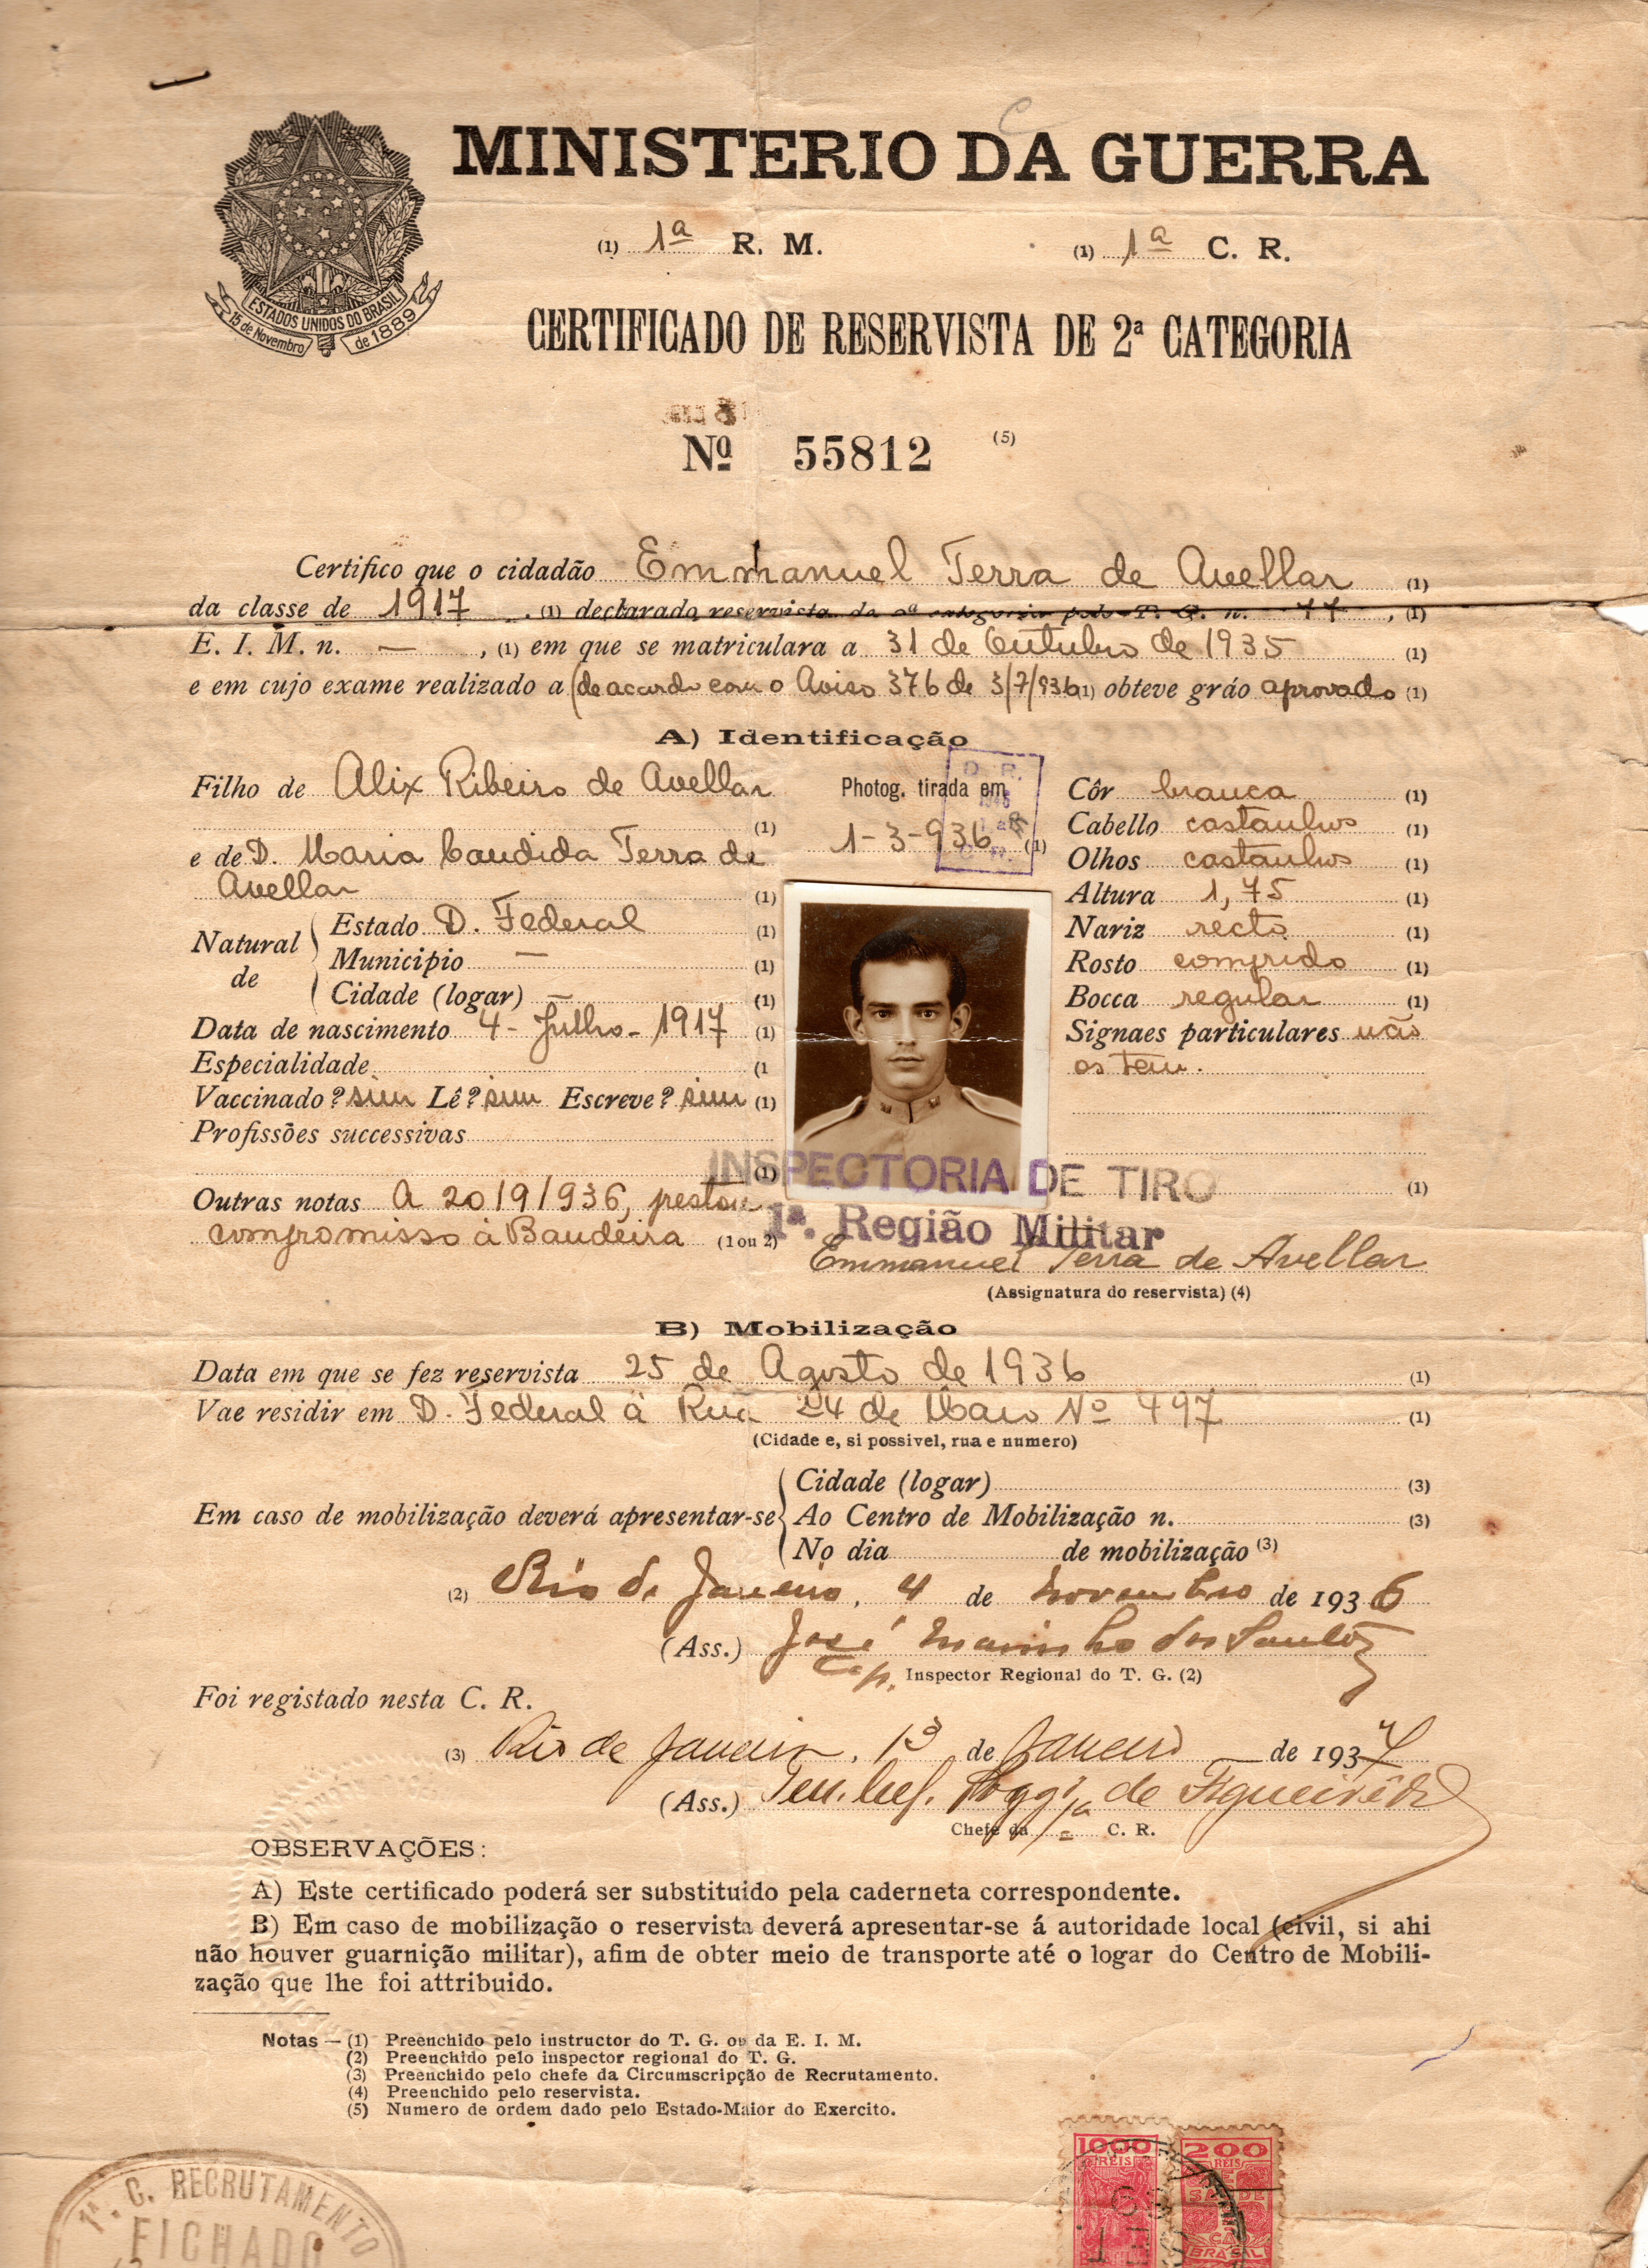 MINISTERIO DA GUERRA
(1) 1ª R. M. (1) 1ª C. R.
ESTADOS UNIDOS DO BRASIL
15 de Novembro de 1889
CERTIFICADO DE RESERVISTA DE 2ª CATEGORIA
Nº 55812 (5)
Certifico que o cidadão Emmanuel Terra de Avellar (1)
da classe de 1917, (1) declarado reservista da 2ª categoria pelo T. G. n. 77, (1)
E. I. M. n. —, (1) em que se matriculara a 31 de Outubro de 1935 (1)
e em cujo exame realizado a (de acordo com o Aviso 376 de 3/7/936 (1) obteve gráo aprovado (1)
A) Identificação
Filho de Alix Ribeiro de Avellar
(1)
e de D. Maria Candida Terra de
Avellar (1)
Natural de
Estado D. Federal (1)
Municipio — (1)
Cidade (logar) — (1)
Data de nascimento 4 - Julho - 1917 (1)
Especialidade (1
Vaccinado? sim Lê? sim Escreve? sim (1)
Profissões successivas
(1)
Outras notas A 20/9/936, prestou
compromisso à Bandeira (1 ou 2)
Photog. tirada em
1-3-936 (1)
D. R.
Côr branca (1)
Cabello castanhos (1)
Olhos castanhos (1)
Altura 1,75 (1)
Nariz recto (1)
Rosto comprido (1)
Bocca regular (1)
Signaes particulares não
os tem.
(1)
INSPECTORIA DE TIRO
1ª. Região Militar
Emmanuel Terra de Avellar
(Assignatura do reservista) (4)
B) Mobilização
Data em que se fez reservista 25 de Agosto de 1936 (1)
Vae residir em D. Federal à Rua 24 de Maio Nº 497 (1)
(Cidade e, si possivel, rua e numero)
Em caso de mobilização deverá apresentar-se
Cidade (logar) (3)
Ao Centro de Mobilização n. (3)
No dia de mobilização (3)
(2) Rio de Janeiro, 4 de Novembro de 1936
(Ass.) José Marinho dos Santos
Cap. Inspector Regional do T. G. (2)
Foi registado nesta C. R.
(3) Rio de Janeiro, 13 de Janeiro de 1937
(Ass.) Ten. Cel. de Figueirêdo
Chefe da 1ª C. R.
OBSERVAÇÕES:
A) Este certificado poderá ser substituido pela caderneta correspondente.
B) Em caso de mobilização o reservista deverá apresentar-se á autoridade local (civil, si ahi
não houver guarnição militar), afim de obter meio de transporte até o logar do Centro de Mobili-
zação que lhe foi attribuido.
Notas — (1) Preenchido pelo instructor do T. G. ou da E. I. M.
(2) Preenchido pelo inspector regional do T. G.
(3) Preenchido pelo chefe da Circumscripção de Recrutamento.
(4) Preenchido pelo reservista.
(5) Numero de ordem dado pelo Estado-Maior do Exercito.
1ª. C. RECRUTAMENTO
FICHADO
1000 RÉIS
200 RÉIS
SAUDE
BRASIL